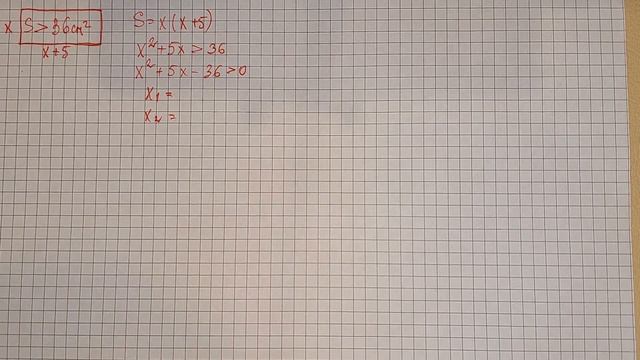 x S > 36 cm²
x+5
S = x (x+5)
x² + 5x > 36
x² + 5x - 36 > 0
x₁ =
x₂ =